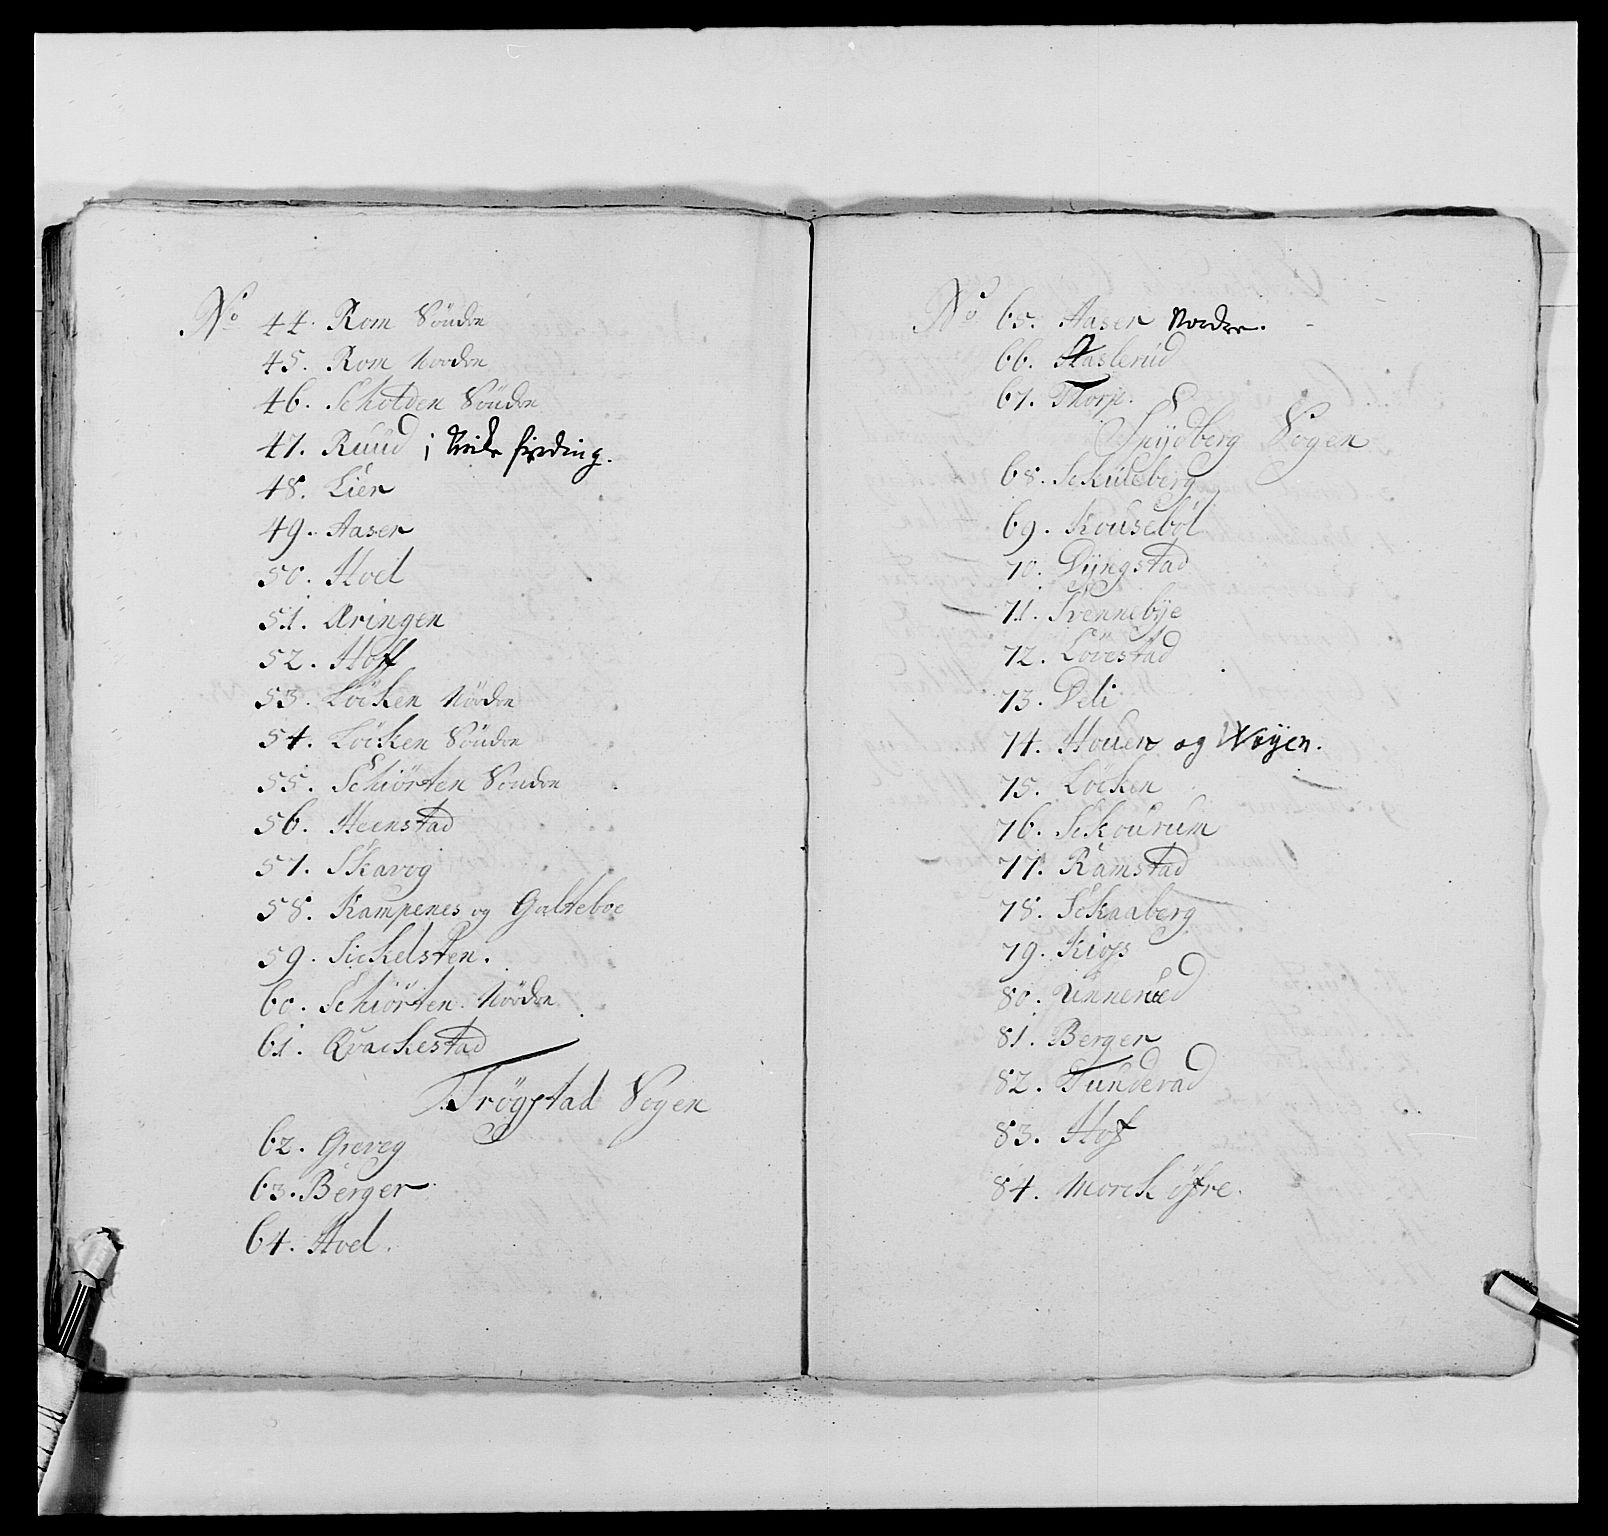 No 44. Rom Söndre
45. Rom Nordre
46. Scholden Söndre
47. Ruud i fierding.
48. Lier
49. Aaser
50. Hoel
51. Æringen
52. Hoff
53. Löcken Nördre
54. Löcken Söndre
55. Schiörten Söndre
56. Heenstad
57. Skavog
58. Kampenes og Galteboe
59. Sickelsten.
60. Schiörten Nördre
61. Qvackestad
Trögstad Sogen
62. Greveg
63. Berger
64. Hoel.
No 65. Aaser Nordre.
66. Haslerud
67. Thorp.
Spydberg Sogen
68. Sckuleberg
69. Kousebøl
70. Dÿngstad
71. Svennebÿe
72. Lövestad
73. Deli
74. Houer og Wøyen.
75. Löcken
76. Sckourum
77. Ramstad
78. Sckaaberg
79. Kioss
80. Unnerud
81. Berger
82. Tunderad
83. Hof
84. Morck öfre.